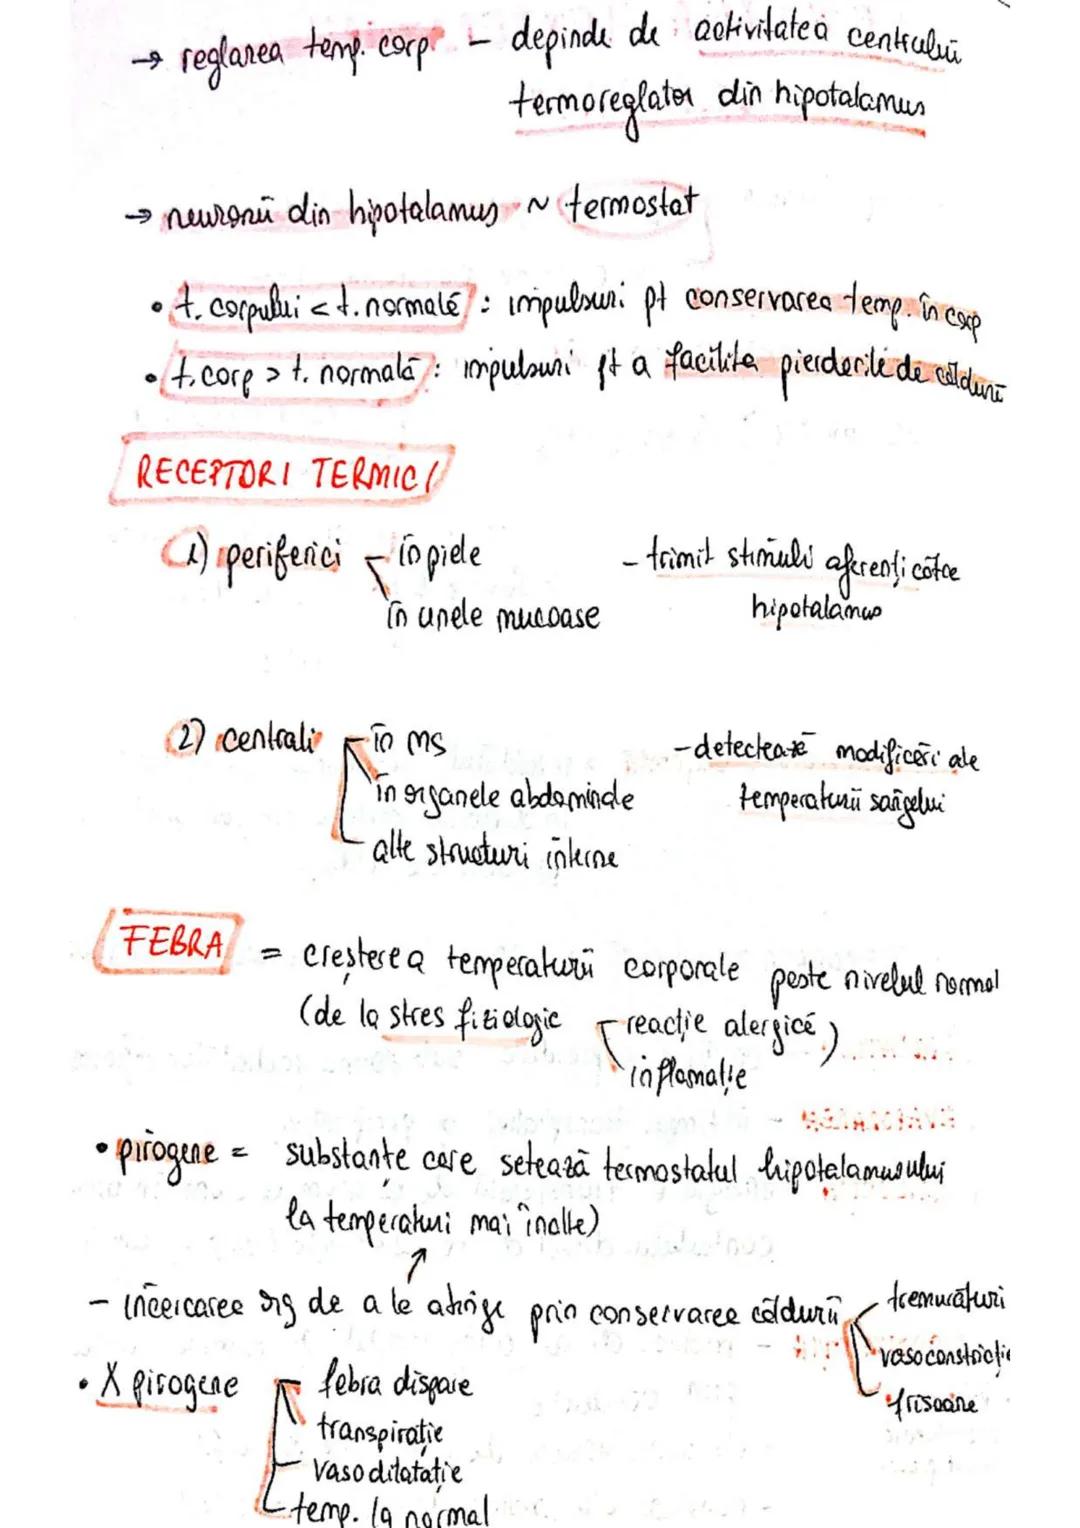 → reglarea temp. corp – depinde de activitatea centrului
termoreglator din hipotalamus
→ neuronii din hipotalamus ~ termostat
• t. corpului < t. normală : impulsuri pt conservarea temp. în corp
• t. corp > t. normală : impulsuri pt a facilita pierderile de căldură
RECEPTORI TERMICI
1) periferici – în piele – trimit stimuli aferenți către
în unele mucoase hipotalamus
2) centrali – în MS – detectează modificări ale
în organele abdominale temperaturii sângelui
alte structuri interne
FEBRA = creșterea temperaturii corporale peste nivelul normal
(de la stres fiziologic reacție alergică)
inflamație
• pirogene = substanțe care setează termostatul hipotalamusului
la temperaturi mai înalte)
– încercarea org de a le atinge prin conservarea căldurii – tremurături
vasoconstricție
• X pirogene – febra dispare frisoane
transpirație
vasodilatație
temp. la normal